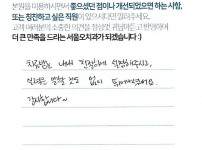 본원을 이용하시면서 좋으셨던 점이나 개선되었으면 하는 사항,
또는 칭찬하고 싶은 직원이 있으시다면 말해주세요.
고객 여러분의 소중한 의견을 귀담아 듣고 반영하여
더 큰 만족을 드리는 서울오치과가 되겠습니다 :)
치료받는 내내 친절하게 설명해주시고,
치료는 말할 것도 없이
감사합니다~